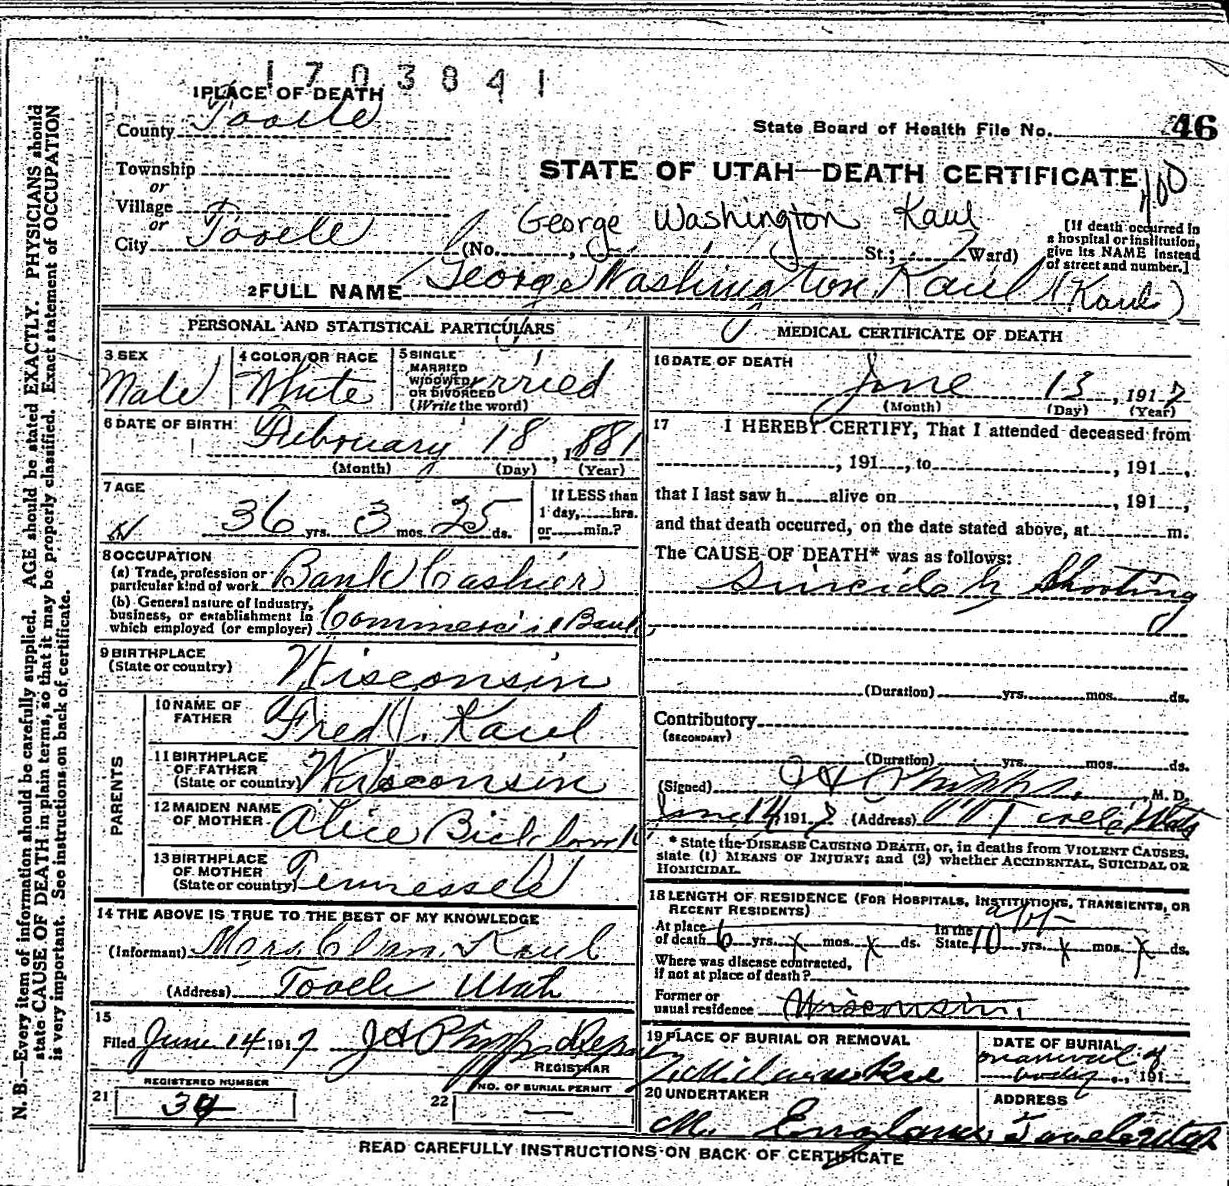 1703841
1 PLACE OF DEATH
County Tooele
State Board of Health File No. 46
Township
or
Village
or
City Tooele
STATE OF UTAH—DEATH CERTIFICATE
George Washington Kaul
(No. , St.; Ward)
[If death occurred in
a hospital or institution,
give its NAME instead
of street and number.]
2 FULL NAME George Washington Kaul (Kaul)
PERSONAL AND STATISTICAL PARTICULARS
3 SEX
Male
4 COLOR OR RACE
White
5 SINGLE
MARRIED
WIDOWED
OR DIVORCED
(Write the word)
6 DATE OF BIRTH
February 18, 1881
(Month) (Day) (Year)
7 AGE
36 yrs. 3 mos. 25 ds.
If LESS than
1 day, hrs.
or min.?
8 OCCUPATION
(a) Trade, profession or
particular kind of work Bank Cashier
(b) General nature of Industry,
business, or establishment in
which employed (or employer) Commercial Bank
9 BIRTHPLACE
(State or country) Wisconsin
PARENTS
10 NAME OF
FATHER Fred J. Kaul
11 BIRTHPLACE
OF FATHER
(State or country) Wisconsin
12 MAIDEN NAME
OF MOTHER Alice
13 BIRTHPLACE
OF MOTHER
(State or country) Tennessee
14 THE ABOVE IS TRUE TO THE BEST OF MY KNOWLEDGE
(Informant) Mrs. Kaul
(Address) Tooele Utah
15
Filed June 14 1917
REGISTRAR
REGISTERED NUMBER
21 34
NO. OF BURIAL PERMIT
22 —
MEDICAL CERTIFICATE OF DEATH
16 DATE OF DEATH
June 13, 1917
(Month) (Day) (Year)
17 I HEREBY CERTIFY, That I attended deceased from
, 191 , to , 191 ,
that I last saw h alive on , 191 ,
and that death occurred, on the date stated above, at m.
The CAUSE OF DEATH* was as follows:
Suicide by Shooting
(Duration) yrs. mos. ds.
Contributory
(SECONDARY)
(Duration) yrs. mos. ds.
(Signed) J H Phipps, M. D.
June 14, 1917 (Address) Tooele Utah
* State the DISEASE CAUSING DEATH, or, in deaths from VIOLENT CAUSES,
state (1) MEANS OF INJURY; and (2) whether ACCIDENTAL, SUICIDAL OR
HOMICIDAL.
18 LENGTH OF RESIDENCE (FOR HOSPITALS, INSTITUTIONS, TRANSIENTS, OR
RECENT RESIDENTS)
At place
of death 6 yrs. x mos. x ds.
In the
State 10 yrs. x mos. x ds.
Where was disease contracted,
if not at place of death?
Former or
usual residence Wisconsin.
19 PLACE OF BURIAL OR REMOVAL
Milwaukee
DATE OF BURIAL
on arrival of
body, 191
20 UNDERTAKER
M. England
ADDRESS
Tooele Utah
READ CAREFULLY INSTRUCTIONS ON BACK OF CERTIFICATE
N. B.—Every item of information should be carefully supplied. AGE should be stated EXACTLY. PHYSICIANS should
state CAUSE OF DEATH in plain terms, so that it may be properly classified. Exact statement of OCCUPATION
is very important. See instructions on back of certificate.